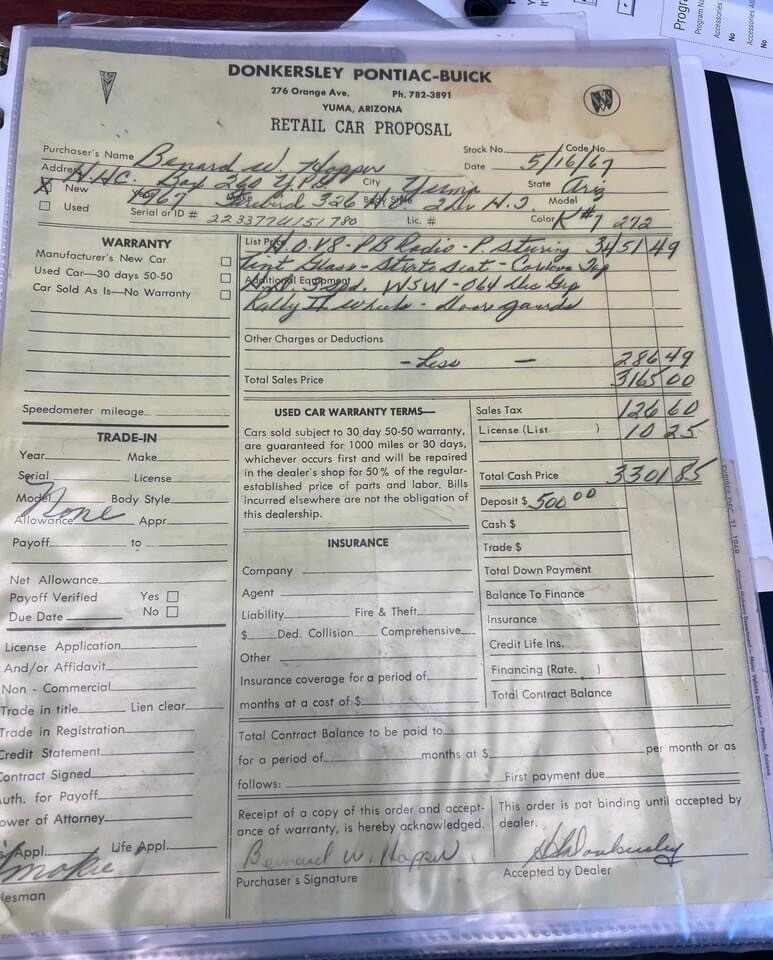 DONKERSLEY PONTIAC-BUICK
276 Orange Ave. Ph. 782-3891
YUMA, ARIZONA
RETAIL CAR PROPOSAL
Stock No. Code No.
Purchaser's Name Benard W. Hopper Date 5/16/67
Address H.H.C. Box 260 Y.P.G. City Yuma State Ariz
X New Year 1967 Make Firebird 326 H.O. Body Style 2dr H.T. Model
Used Serial or ID # 223377U151780 Lic. # Color R #7 272
WARRANTY
Manufacturer's New Car
Used Car—30 days 50-50
Car Sold As Is—No Warranty
Speedometer mileage
List Price H.O. V8 - PB Radio - P. Stering 3451 49
Tint Glass - Strato Seat - Cordova Top
Additional Equipment 3 spd. WSW - 064 Dec Grp
Rally II Wheels - door gaurds
Other Charges or Deductions
- Less - 286 49
Total Sales Price 3165 00
TRADE-IN
Year Make
Serial License
Model None Body Style
Allowance Appr.
Payoff to
Net Allowance
Payoff Verified Yes
Due Date No
License Application
And/or Affidavit
Non - Commercial
Trade in title Lien clear
Trade in Registration
Credit Statement
Contract Signed
Auth. for Payoff
Power of Attorney
Appl. Life Appl.
Smokie
lesman
USED CAR WARRANTY TERMS—
Cars sold subject to 30 day 50-50 warranty,
are guaranteed for 1000 miles or 30 days,
whichever occurs first and will be repaired
in the dealer's shop for 50% of the regular-
established price of parts and labor. Bills
incurred elsewhere are not the obligation of
this dealership.
INSURANCE
Company
Agent
Liability Fire & Theft
$ Ded. Collision Comprehensive
Other
Insurance coverage for a period of
months at a cost of $
Sales Tax 126 60
License (List ) 10 25
Total Cash Price 3301 85
Deposit $ 500 00
Cash $
Trade $
Total Down Payment
Balance To Finance
Insurance
Credit Life Ins.
Financing (Rate. )
Total Contract Balance
Total Contract Balance to be paid to
for a period of months at $ per month or as
follows: First payment due
Receipt of a copy of this order and accept-
ance of warranty, is hereby acknowledged.
Bernard W. Hopper
Purchaser's Signature
This order is not binding until accepted by
dealer.
Accepted by Dealer
EXPIRES DEC. 31, 1969
Program Na
Accessories
No
Accessories
No